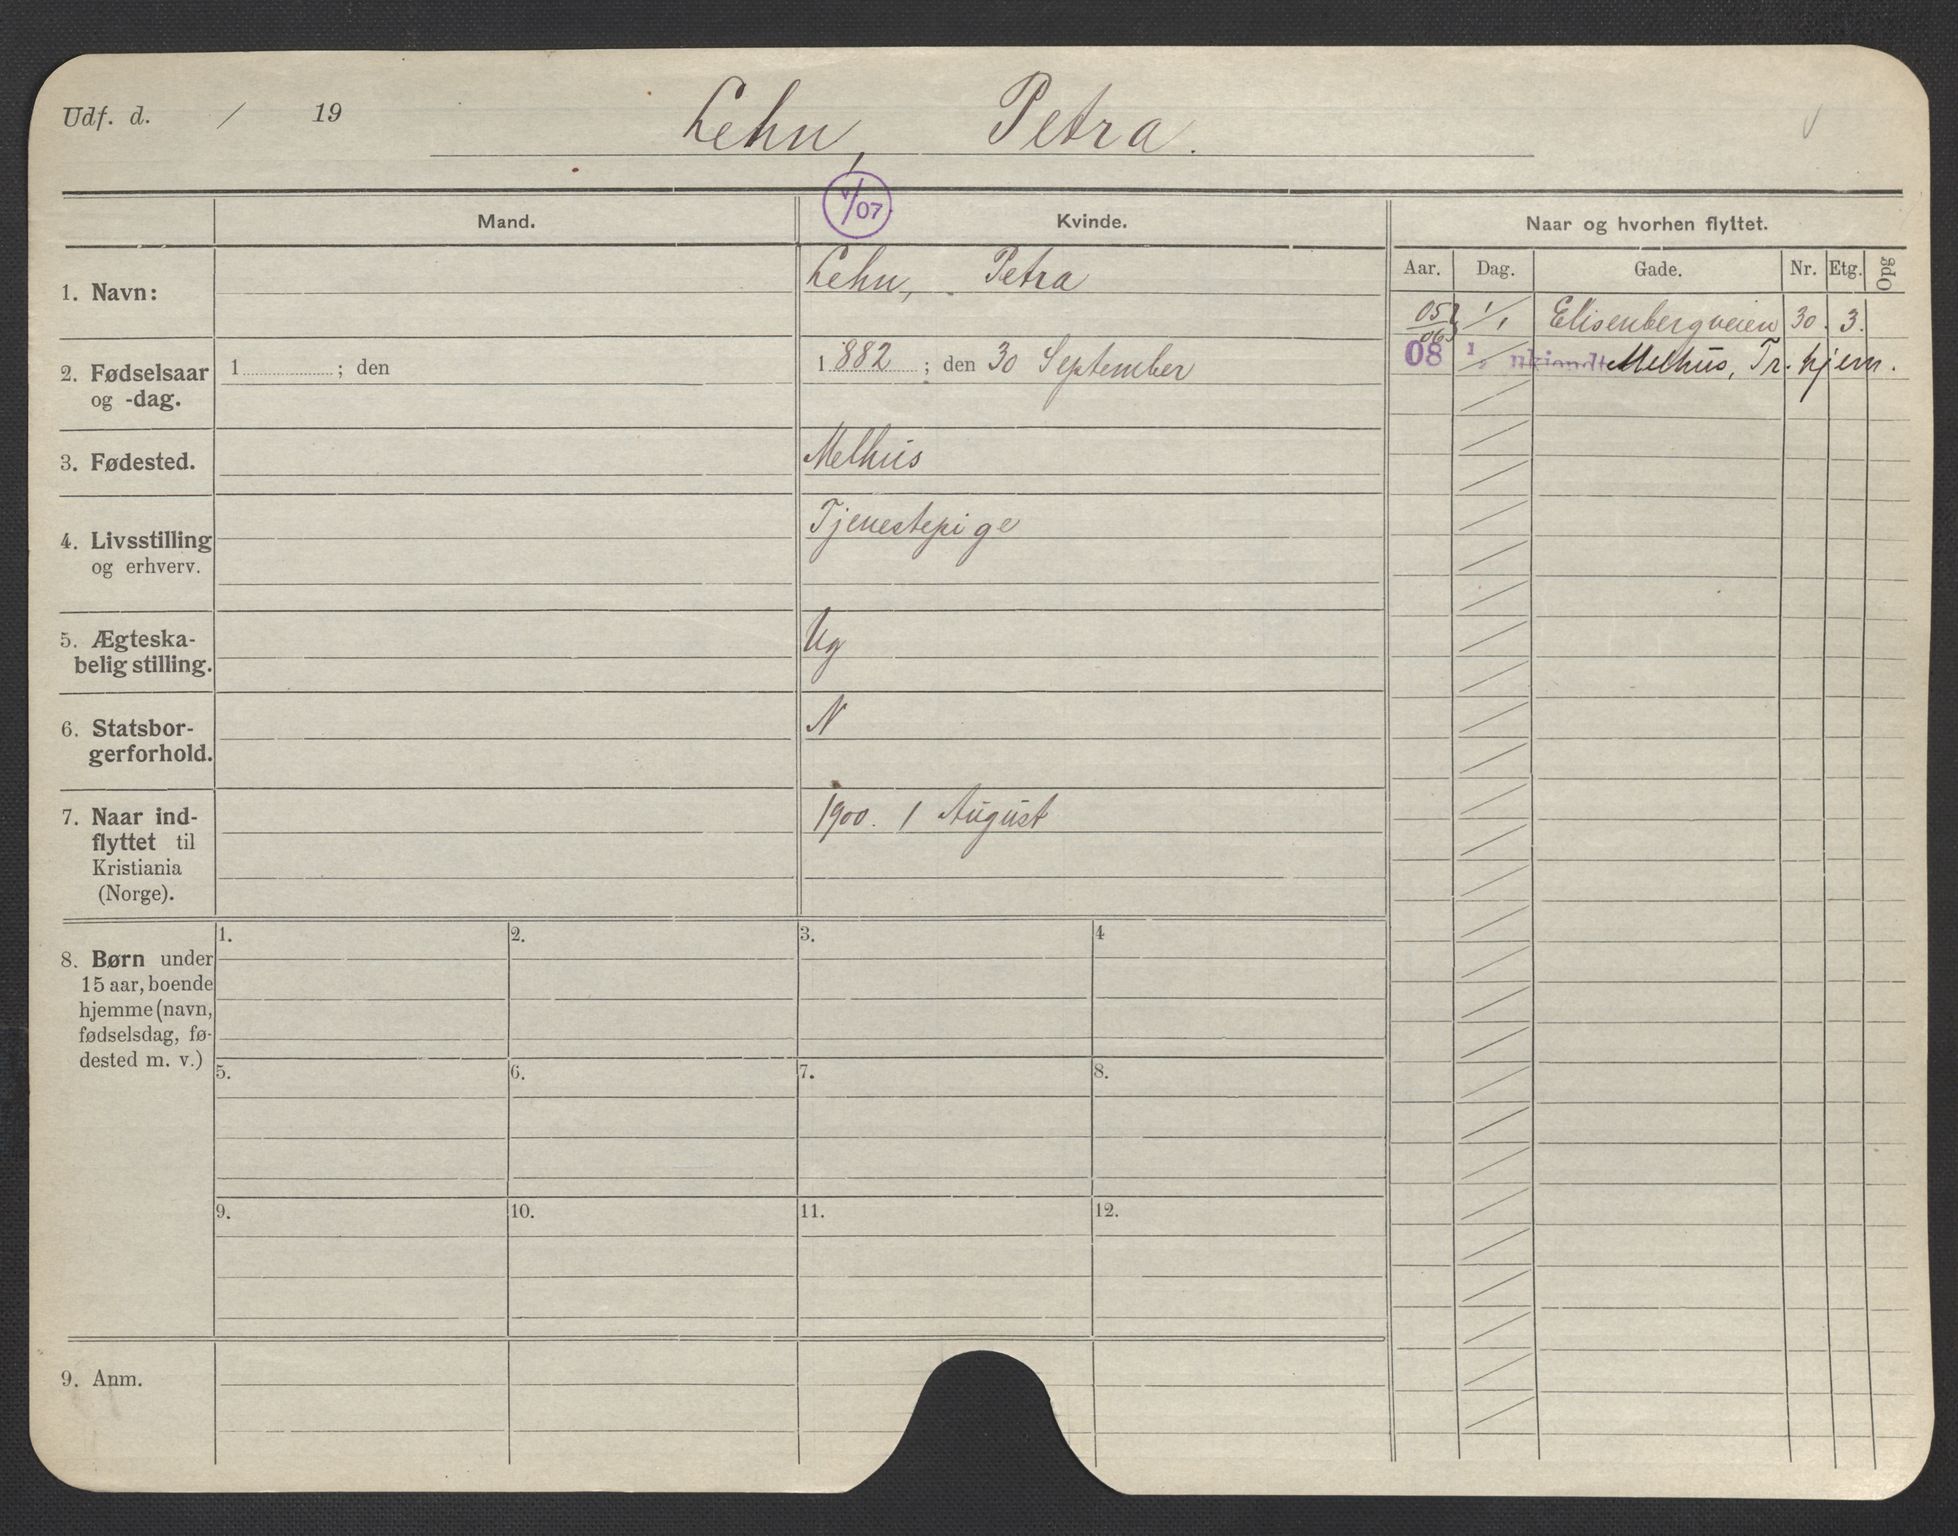 Udf. d. / 19
Lehn, Petra.
v/07
Mand.
Kvinde.
Naar og hvorhen flyttet.
Aar. Dag. Gade. Nr. Etg. Opg
1. Navn:
Lehn, Petra
05 06 1/1 Elisenbergveien 30. 3.
08 1/ Melhus, Tr.hjem.
2. Fødselsaar
og -dag.
1 ; den
1882 ; den 30 September
3. Fødested.
Melhus
4. Livsstilling
og erhverv.
Tjenestepige
5. Ægteska-
belig stilling.
Ug
6. Statsbor-
gerforhold.
N
7. Naar ind-
flyttet til
Kristiania
(Norge).
1900. 1 August
8. Børn under
15 aar, boende
hjemme (navn,
fødselsdag, fø-
dested m. v.)
1. 2. 3. 4
5. 6. 7. 8.
9. 10. 11. 12.
9. Anm.